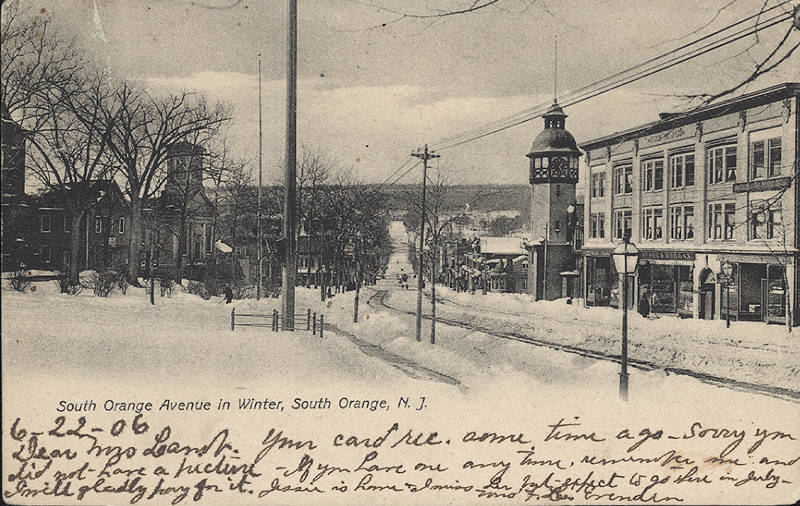 SAVAGE & MORGAN
South Orange Avenue in Winter, South Orange, N. J.
6-22-06
Dear Mrs Your card rec. some time ago - Sorry yu
did not have a picture - If yu have one any time, remember me and
I will gladly pay for it. Jessie is home - I miss her but expect to go there in July -
Mrs